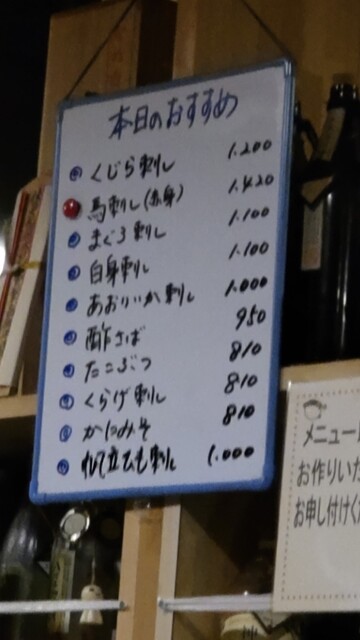 本日のおすすめ
くじら刺し 1.200
馬刺し(赤身) 1.420
まぐろ刺し 1.100
白身刺し 1.100
あおりいか刺し 1.000
酢さば 950
たこぶつ 810
くらげ刺し 810
かにみそ 810
帆立ひも刺し 1.000
メニュー
お作りいた
お申し付けく